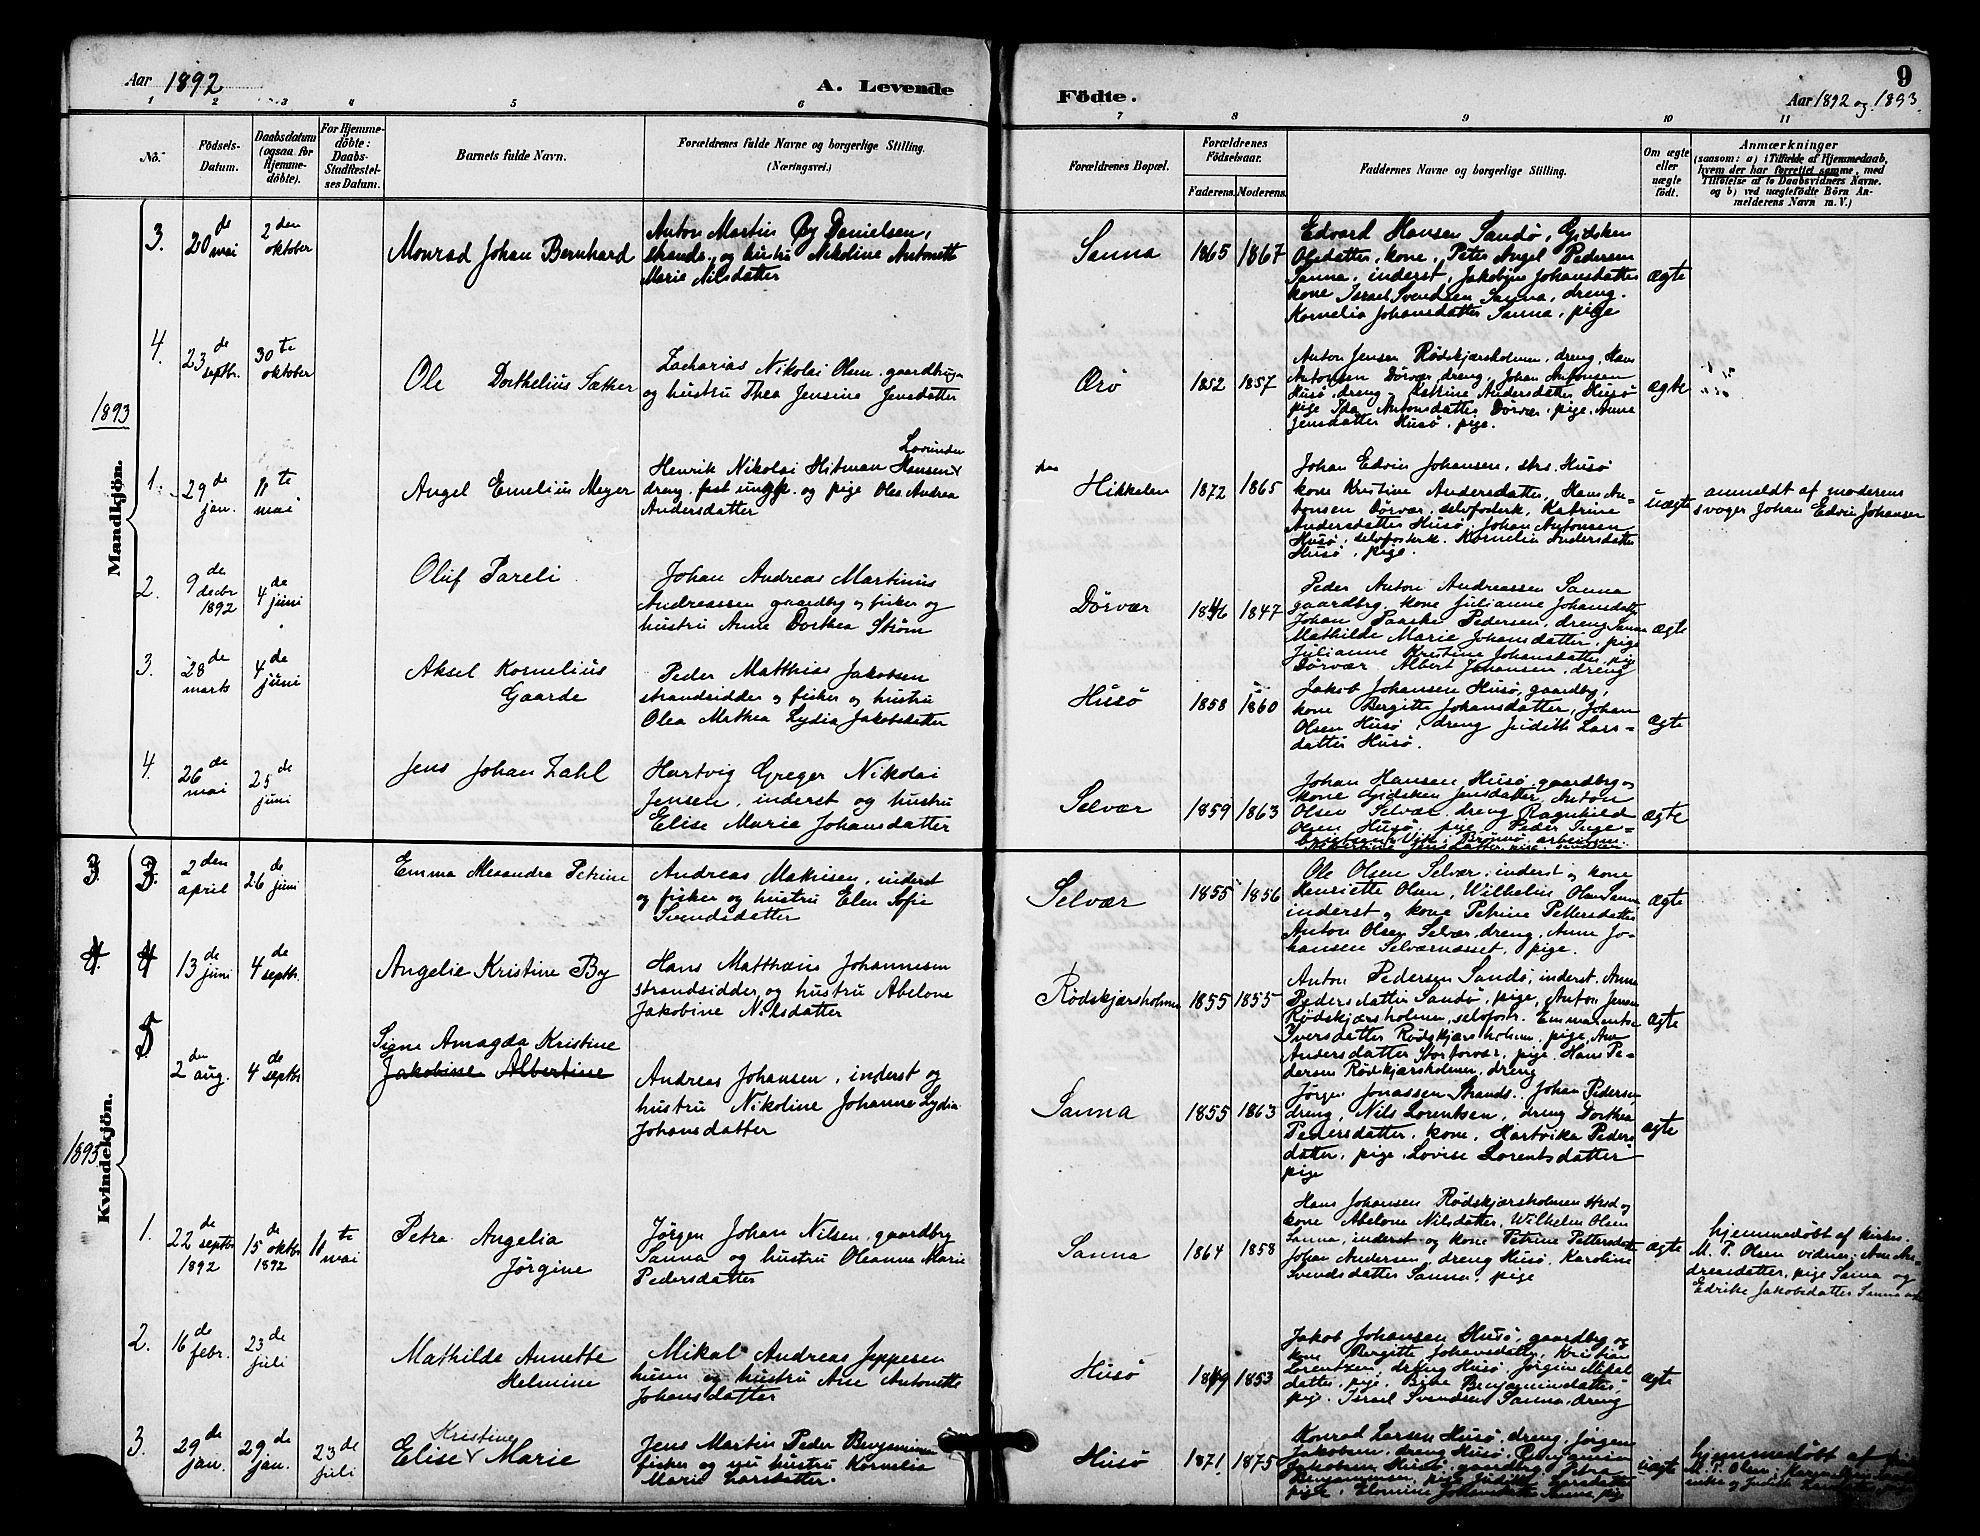 Aar 1892
A. Levende
Födte.
9
Aar 1892 og 1893.
1 2 3 4 5 6 7 8 9 10 11
No.
Födsels-
Datum.
Daabsdatum
(ogsaa for
Hjemme-
döbte).
For Hjemme-
döbte:
Daabs-
Stadfæstel-
ses Datum.
Barnets fulde Navn.
Forældrenes fulde Navne og borgerlige Stilling.
(Næringsvei.)
Forældrenes Bopæl.
Forældrenes
Födselsaar.
Faderens. Moderens.
Faddernes Navne og borgerlige Stilling.
Om ægte
eller
uægte
födt.
Anmærkninger
(saasom: a) i Tilfælde af Hjemmedaab,
hvem der har forrettet samme, med
Tilföielse af to Daabsvidners Navne.
og b) ved uægtefödte Börn An-
melderens Navn m. V.)
Mandkjön.
3.
20 de
mai
2 den
oktober
Monrad Johan Bernhard
Anton Martin Øy Danielsen,
strands. og hustru Nikoline Antonette
Marie Nilsdatter
Sanna
1865
1867
Edvard Hansen Sandø, Gidsken
Olsdatter, kone, Peter Angel Pedersen
Sanna, inderst, Jakobine Johansdatter
kone Israel Svendsen Sanna, dreng.
Kornelia Johansdatter Sanna, pige
ægte
4.
23 de
septbr.
30 te
oktober
Ole Dorthelius Sæther
Zacharias Nikolai Olsen gaardbruger
og hustru Thea Jensine Jensdatter
Ørø
1852
1857
Anton Jensen Rødskjærsholmen, dreng, Hans
Antonsen Dørvær, dreng, Johan Antonsen
Husø, dreng, Katrine Andersdatter Husø
pige Ida Antonsdatter Dørvær, pige. Anne
Jensdatter Husø, pige.
ægte
1893
1.
29 de
jan.
11 te
mai
Angel Emelius Meyer
Lovunden
Henrik Nikolai Hitman Hansen
dreng. fast ungk. og pige Olea Andrea
Andersdatter
paa
Hikkelen
1872
1865
Johan Edvin Johansen, strs. Husø
kone Kristine Andersdatter, Hans An-
tonsen Dørvær, selvfoderk, Katrine
Andersdatter Husø, Johan Antonsen
Husø, selvfosterk. Kornelia Andersdatter
Husø, pige.
uægte
anmeldt af moderens
svoger Johan Edvin Johansen
2.
9 de
decbr
1892
4 de
juni
Oluf Pareli
Johan Andreas Martinus
Andreassen gaardbg og fisker og
hustru Anne Dorthea Strøm
Dørvær
1846
1847
Peder Anton Andreassen Sanna
gaardbrg. kone Julianne Johansdatter
Johan Paaske Pedersen, dreng Sanna
Mathilde Marie Johansdatter, pige
Julianne Kristine Johansdatter, pige
Dørvær. Albert Johansen, dreng
ægte
3.
28 de
marts
4 de
juni
Aksel Kornelius
Gaarde
Peder Matthias Jakobsen
strandsidder og fisker og hustru
Olea Mathea Lydia Jakobsdatter
Husø
1858
1860
Jakob Johansen Husø, gaardbg,
kone Bergitte Johansdatter, Johan
Olsen Husø, dreng Judith Lars-
datter Husø.
ægte
4.
26 de
mai
25 de
juni
Jens Johan Zahl
Hartvig Greger Nikolai
Jensen, inderst og hustru
Elise Marie Johansdatter
Selvær
1859
1863
Johan Hansen Husø, gaardbg og
kone Gidsken Jensdatter, Anton
Olsen Selvær, dreng Ragnhild
Olsen Husø, pige Peder Inge-
ægte
Kvindekjön.
3 3.
2 den
april
26 de
juni
Emma Alexandra Petrine
Andreas Mathisen, inderst
og fisker og hustru Elen Sofie
Svendsdatter
Selvær
1855
1856
Ole Olsen Selvær, inderst og kone
Henriette Olsen, Wilhelm Olsen Sanna
inderst og kone Petrine Pettersdatter
Anton Olsen Selvær, dreng, Anne Jo-
hansen Selværnæsset, pige.
ægte
4. 4
13 de
juni
4 de
septbr.
Angelie Kristine By
Hans Matthæus Johannesen
strandsidder og hustru Abelone
Jakobine Nilsdatter
Rødskjærsholmen
1855
1855
Anton Pedersen Sandø, inderst, Anne
Pedersdatter Sandø, pige, Anton Jensen
Rødskjærsholmen, selvfost. Emmarentse
Iversdatter Rødskjærsholmen, pige, Ane
Andersdatter Stortorvær, pige, Hans Pe-
dersen Rødskjærsholmen, dreng
ægte
5
2 den
aug.
4 de
septbr
Signe Amagda Kristine
Jakobine Albertine
Andreas Johansen, inderst og
hustru Nikoline Johanne Lydia
Johansdatter
Sanna
1855
1863
Jørgen Jonassen Strands. Johan Pedersen
dreng, Nils Lorentsen, dreng Dorthea
Pedersdatter, kone, Hartvika Peders
datter, pige, Lovise Lorentsdatter
pige
ægte
1893
1.
22 de
septbr
1892
15 de
oktbr
1892
11 te
mai
Petra Angelia
Jørgine
Jørgen Johan Nilsen, gaardbg
Sanna og hustru Oleanna Marie
Pedersdatter
Sanna
1864
1858
Hans Johansen Rødskjærsholmen Husd og
kone Abelone Nilsdatter, Wilhelm Olsen
Sanna, inderst og kone Petrine Pettersdatter
Johan Andersen, dreng Husø, Karoline
Svendsdatter Sanna, pige
ægte
hjemmedøbt af kirkes.
M. P. Olsen vidner: Ane An-
dreasdatter, pige Sanna og
Edrike Jakobsdatter Sanna
2.
16 de
febr.
23 de
juli
Mathilde Annette
Helmine
Mikal Andreas Jeppesen
husm og hustru Ane Antonette
Johansdatter
Husø
1849
1853
Jakob Johansen Husø, gaardbg og
kone Bergitte Johansdatter, Kristian
Lorentzen, dreng Husø, Jørgine Mikal
datter, pige, Benjaminsdatter,
pige. Israel Svendsen Sanna, dreng
ægte
3.
29 de
jan.
29 de
jan.
23 de
juli
Kristine
Elise Marie
Jens Martin Peder Benjaminsen
fisker og nu hustru Kornelia
Marie Larsdatter.
Husø
1871
1875
Konrad Larsen Husø, dreng, Jørgen
Jakobsen, dreng Husø, Benjamin
Jakobsen Husø, gaardbg,
Benjaminsen, pige Judith Larsdatter
pige, Johansdatter Sanna, pige
uægte
hjemmedøbt af
M. P. Olsen